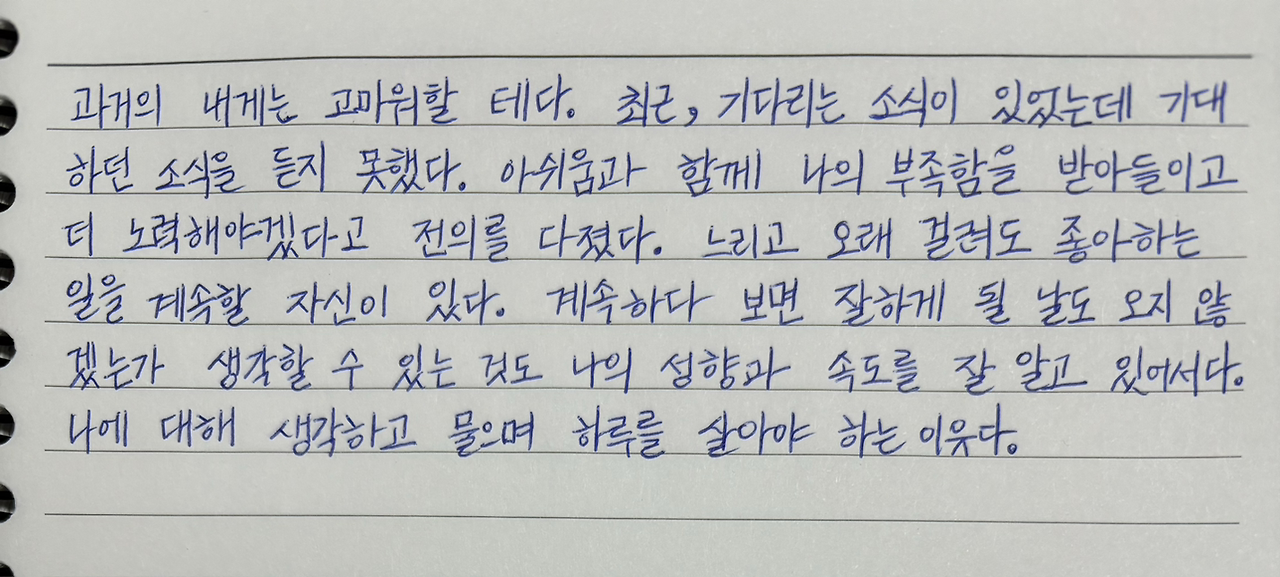 과거의 내게는 고마워할 테다. 최근, 기다리는 소식이 있었는데 기대
하던 소식을 듣지 못했다. 아쉬움과 함께 나의 부족함을 받아들이고
더 노력해야겠다고 전의를 다졌다. 느리고 오래 걸려도 좋아하는
일을 계속할 자신이 있다. 계속하다 보면 잘하게 될 날도 오지 않
겠는가 생각할 수 있는 것도 나의 성향과 속도를 잘 알고 있어서다.
나에 대해 생각하고 물으며 하루를 살아야 하는 이유다.